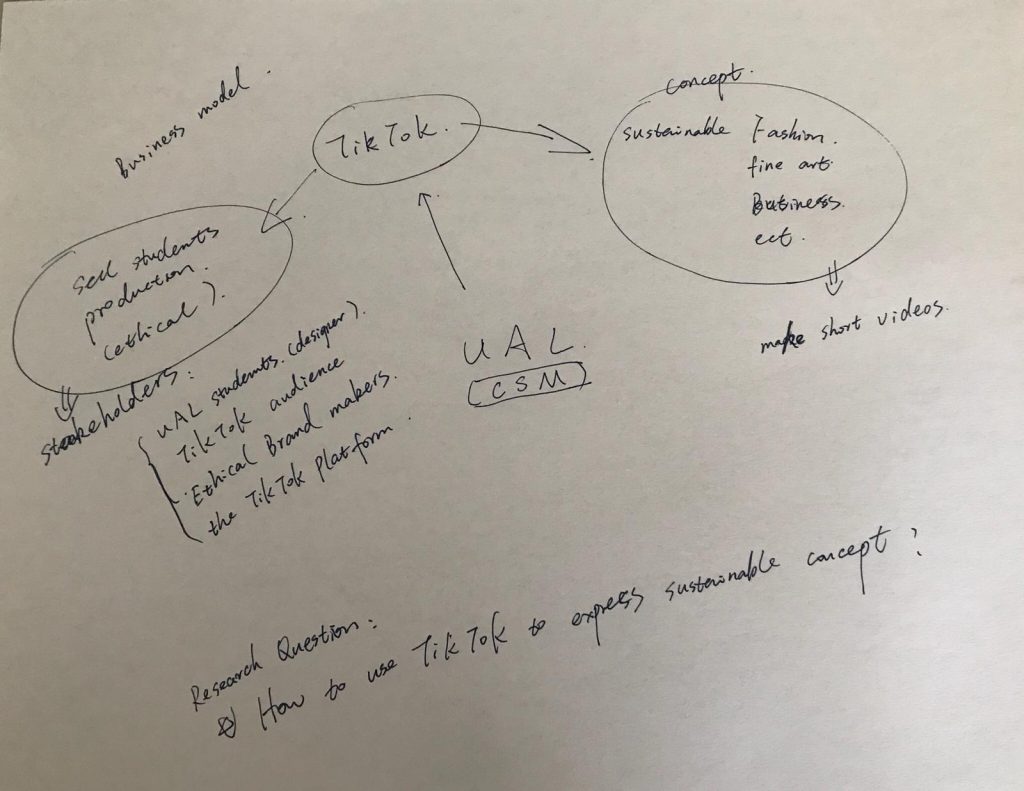 Business model.
TikTok.
concept.
sustainable Fashion.
fine art.
Business.
ect.
make short videos.
sell students
production.
(ethical).
UAL
(CSM)
stakeholders:
UAL students. (designer).
TikTok audience
Ethical Brand makers.
the TikTok Platform.
Research Question:
How to use TikTok to express sustainable concept?